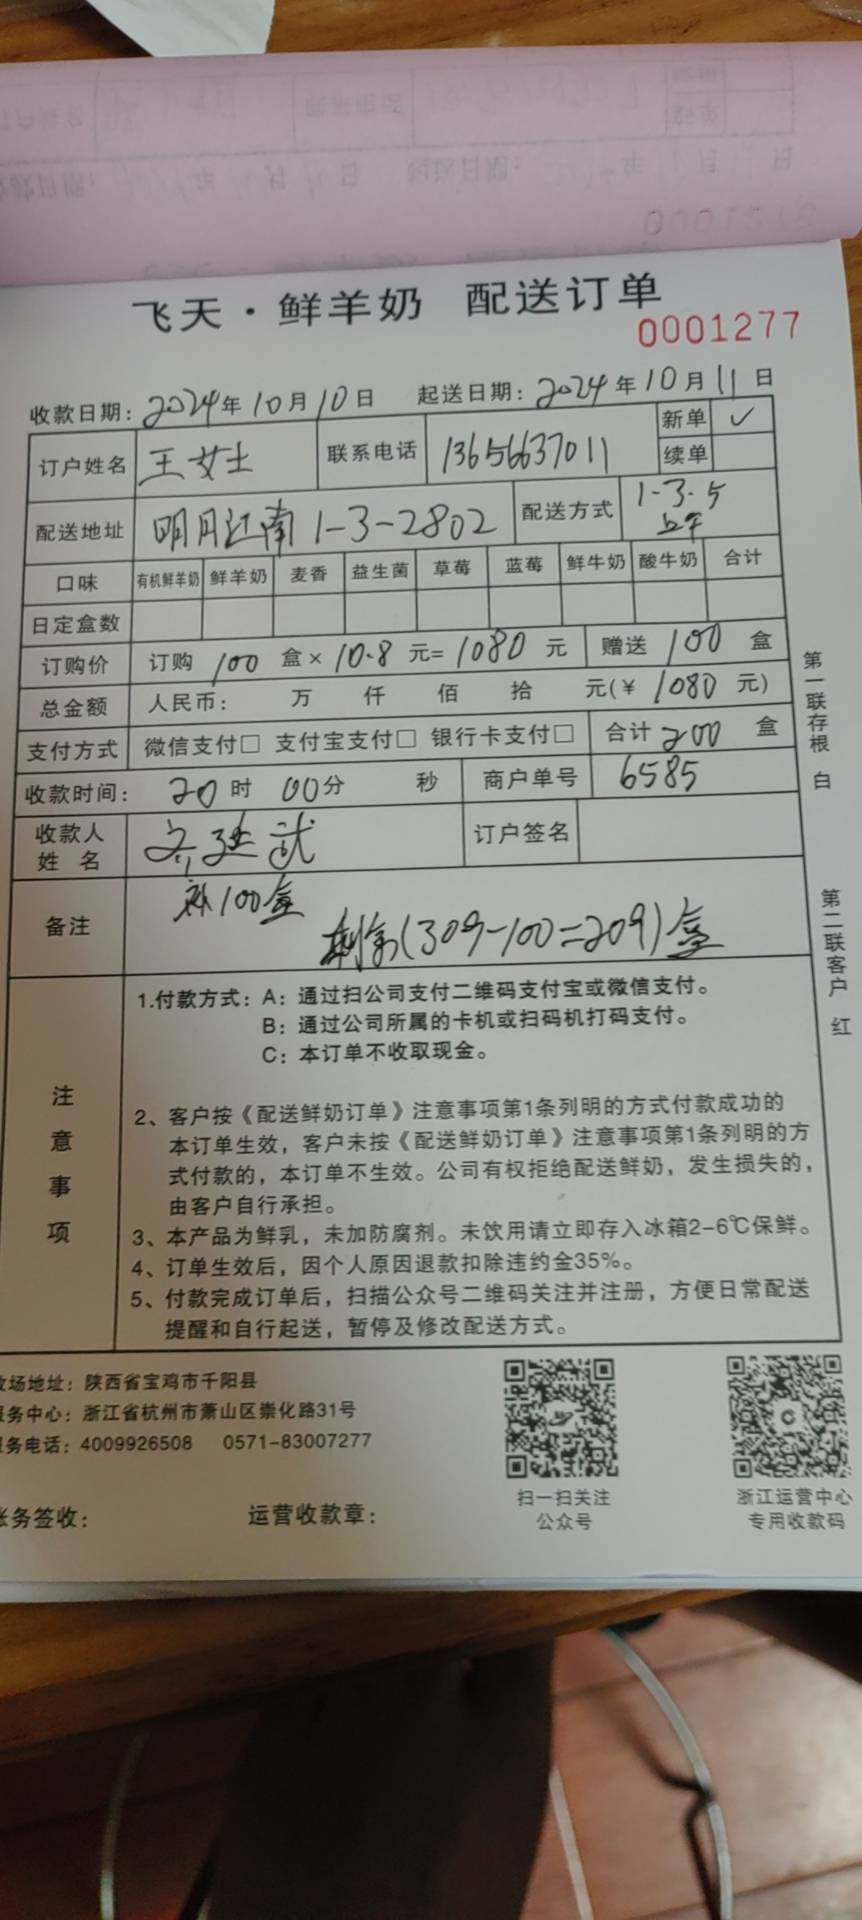 飞天·鲜羊奶 配送订单
0001277
收款日期：2024年10月10日 起送日期：2024年10月11日
订户姓名 王女士 联系电话 13656637011 新单 ✓
续单
配送地址 明月江南1-3-2802 配送方式 1·3·5
上午
口味 有机鲜羊奶 鲜羊奶 麦香 益生菌 草莓 蓝莓 鲜牛奶 酸牛奶 合计
日定盒数
订购价 订购 100 盒× 10.8 元= 1080 元 赠送 100 盒
总金额 人民币： 万 仟 佰 拾 元(¥ 1080 元)
支付方式 微信支付□ 支付宝支付□ 银行卡支付□ 合计 200 盒
收款时间： 20 时 00分 秒 商户单号 6585
收款人
姓 名
订户签名
备注 补100盒
剩余(309-100=209)盒
注意事项
1.付款方式：A：通过扫公司支付二维码支付宝或微信支付。
B：通过公司所属的卡机或扫码机打码支付。
C：本订单不收取现金。
2、客户按《配送鲜奶订单》注意事项第1条列明的方式付款成功的
本订单生效，客户未按《配送鲜奶订单》注意事项第1条列明的方
式付款的，本订单不生效。公司有权拒绝配送鲜奶，发生损失的，
由客户自行承担。
3、本产品为鲜乳，未加防腐剂。未饮用请立即存入冰箱2-6℃保鲜。
4、订单生效后，因个人原因退款扣除违约金35%。
5、付款完成订单后，扫描公众号二维码关注并注册，方便日常配送
提醒和自行起送，暂停及修改配送方式。
第一联存根 白
第二联客户 红
场地址：陕西省宝鸡市千阳县
服务中心：浙江省杭州市萧山区崇化路31号
服务电话：4009926508 0571-83007277
扫一扫关注
公众号
浙江运营中心
专用收款码
账务签收： 运营收款章：